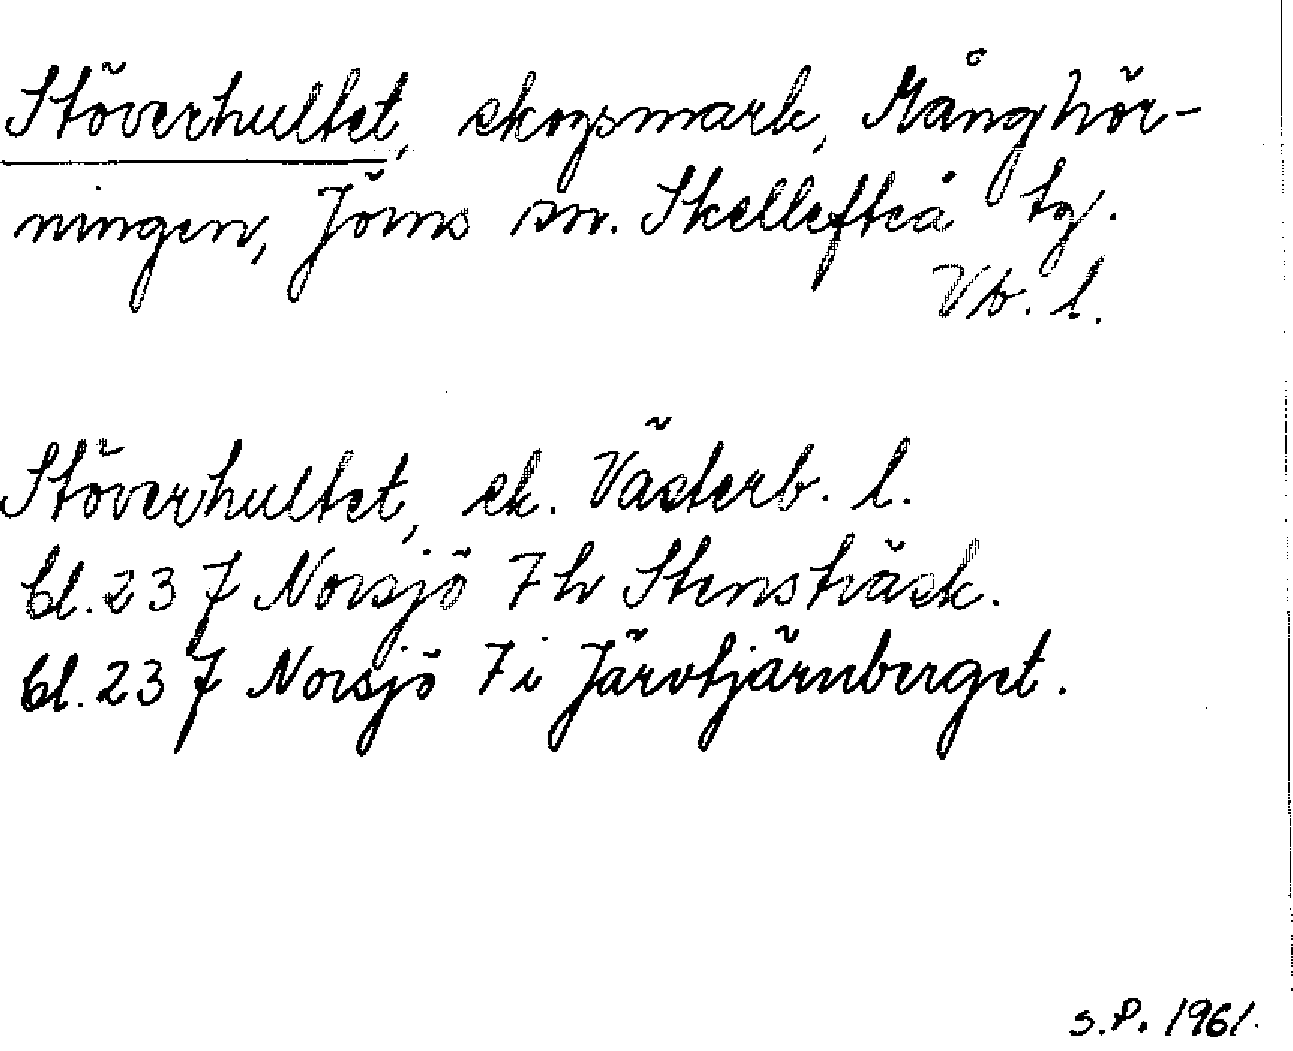 Stöverhultet, skogsmark, Månghör-
ningen, Jörns sn. Skellefteå tg.
Vb. l.
Stöverhultet, sk. Västerb. l.
bl. 23 J Norsjö 7 h Stensträsk.
bl. 23 J Norsjö 7 i Järvtjärnberget.
S.P. 1961.